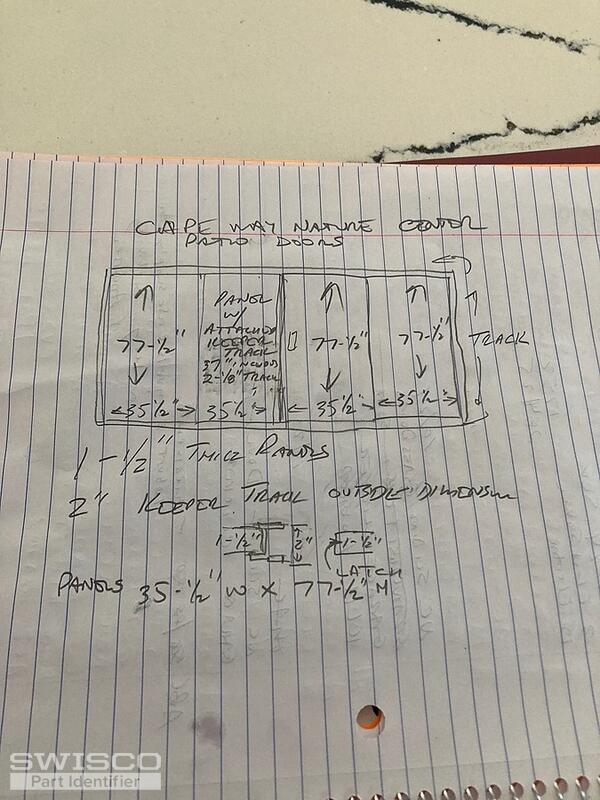 CAPE WAY NATURE CENTER
PATIO DOORS
77-1/2"
PANEL
W/
ATTACHED
KEEPER
TRACK
37"
2-1/8" TRACK
77-1/2"
77-1/2"
TRACK
35 1/2"
35 1/2"
35 1/2"
35 1/2"
1-1/2" THICK PANELS
2" KEEPER TRACK OUTSIDE DIMENSION
1-1/2"
2"
1-1/2"
LATCH
PANELS 35-1/2" W X 77-1/2" H
SWISCO
Part Identifier